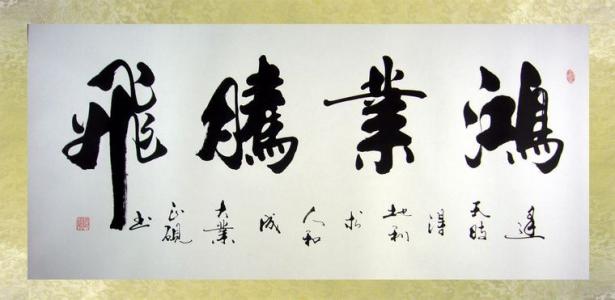 鴻業騰飛
逢天時得地利人和成大業正硯书